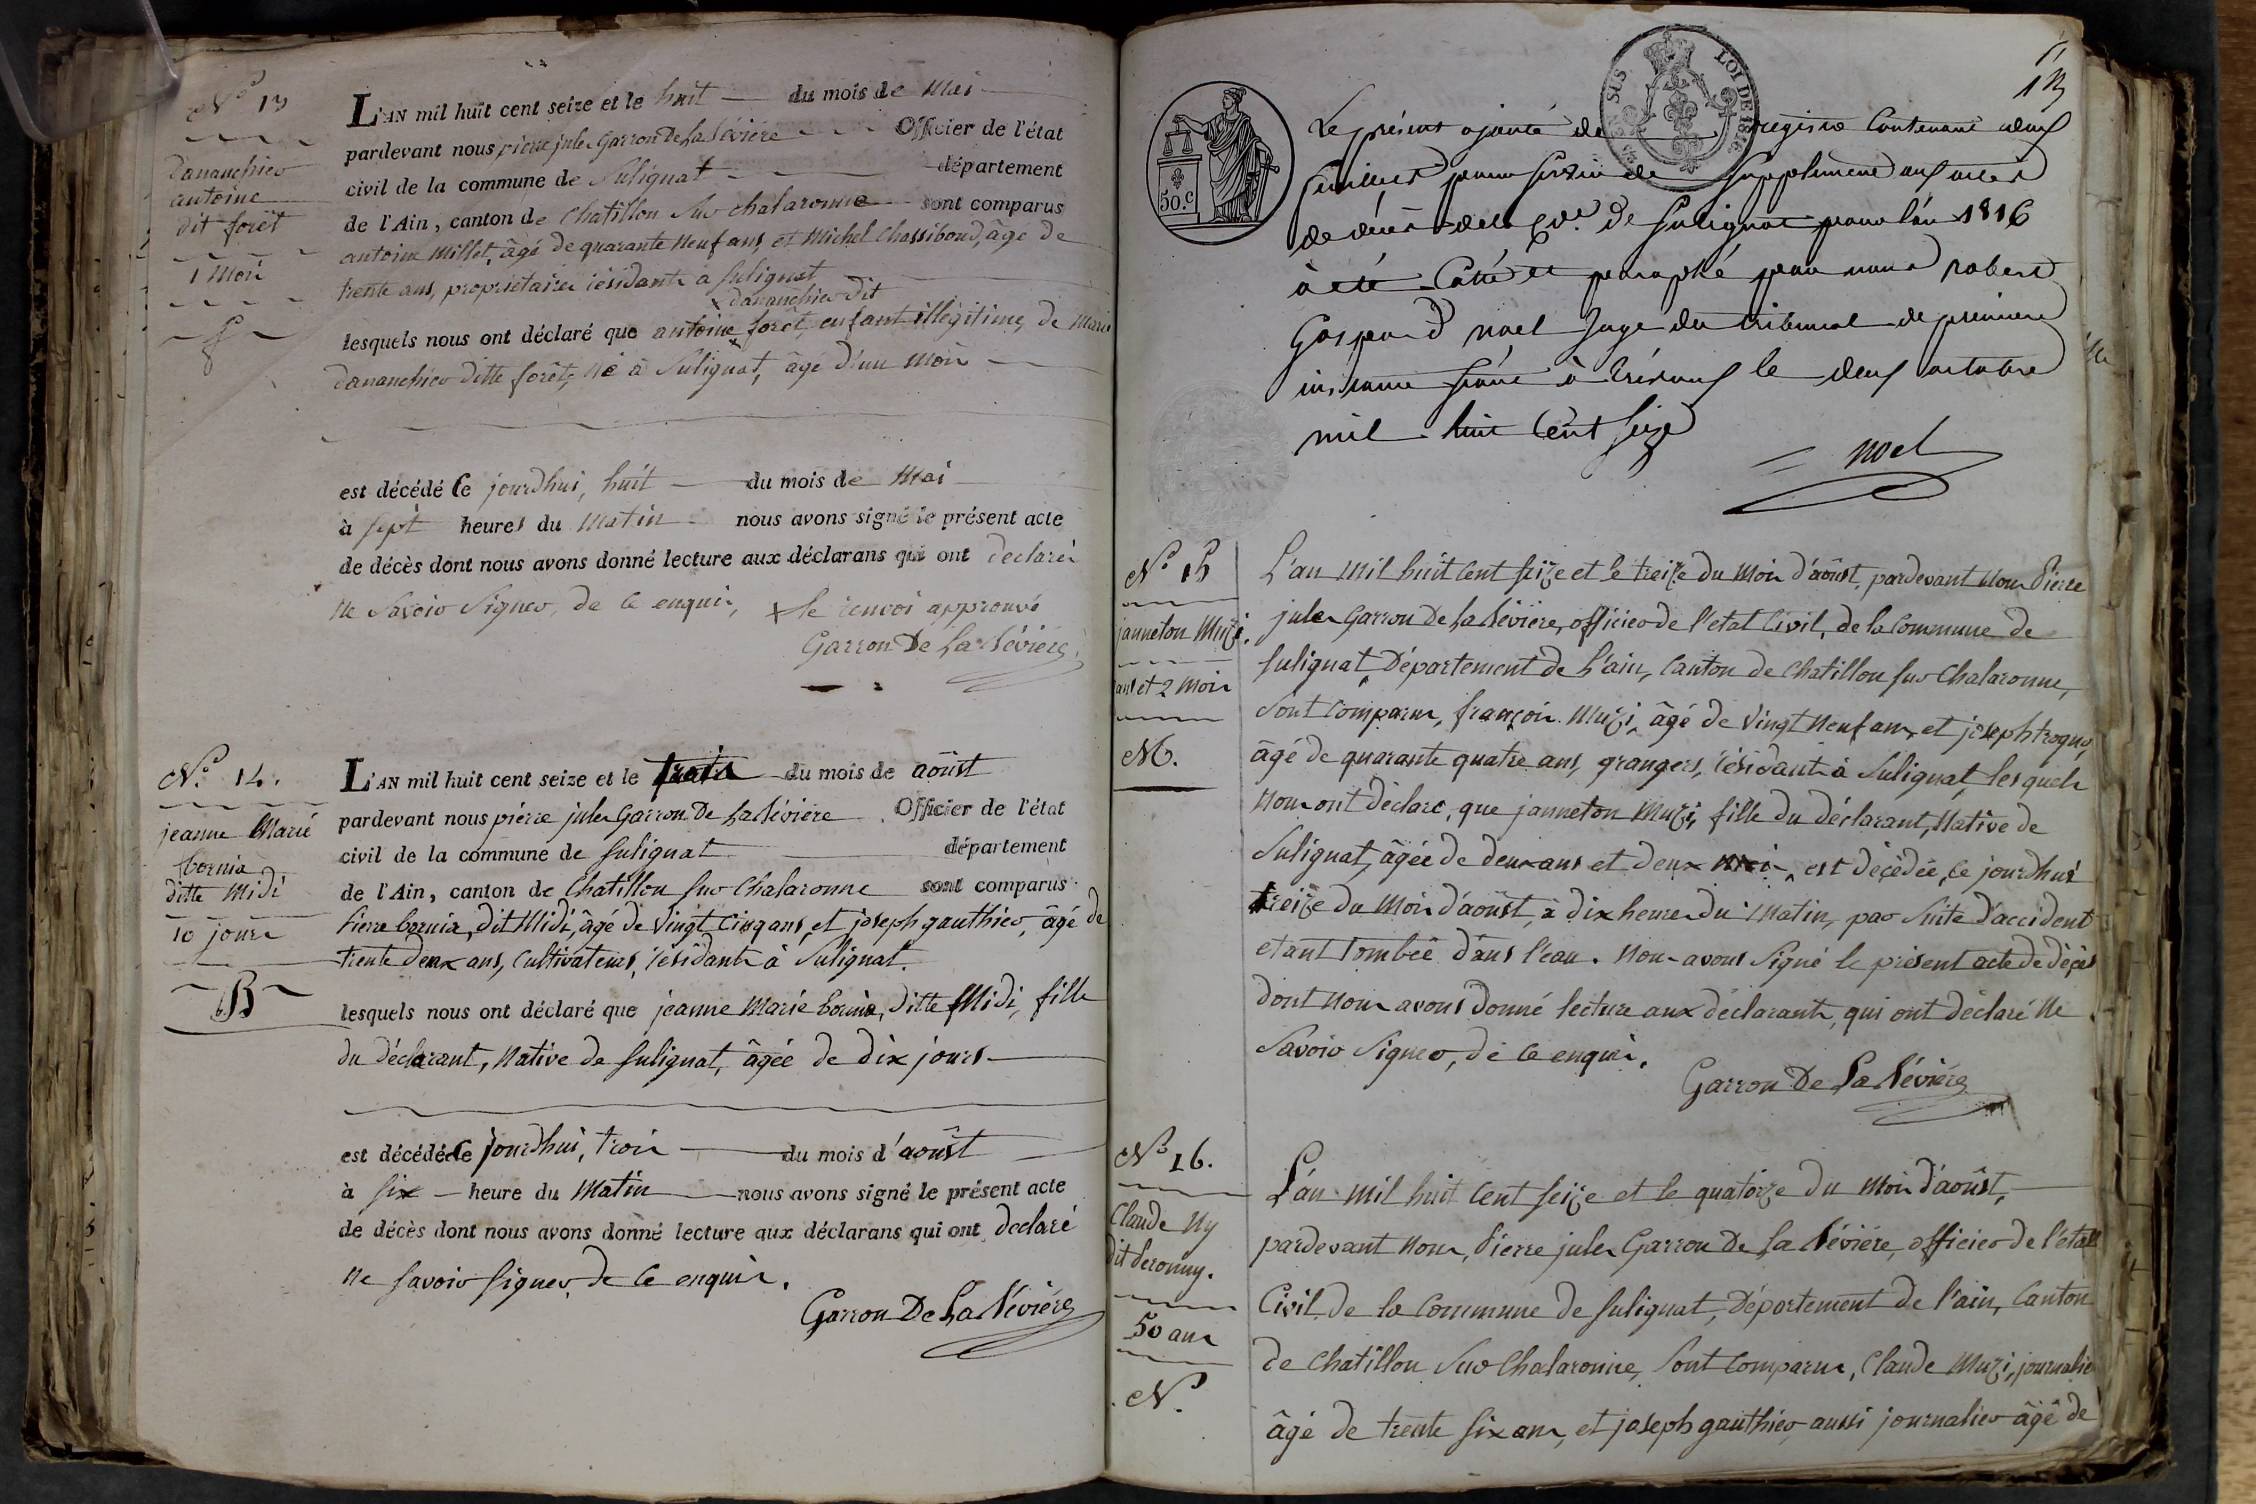 N.º 13
dananchier
antoine
dit forêt
1 mois
f
L'AN mil huit cent seize et le huit du mois de mai
pardevant nous pierre jules Garron De La Bévière Officier de l'état
civil de la commune de Sulignat département
de l'Ain, canton de Chatillon sur chalaronne sont comparus
antoine Millet, âgé de quarante neuf ans, et Michel Chassiboud, âgé de
trente ans, propriétaires résidants à Sulignat
x dananchier dit
lesquels nous ont déclaré que antoine x forêt, enfant illégitime, de Marie
dananchier ditte forêt, né à Sulignat, âgé d'un mois
est décédé ce jourdhui, huit du mois de Mai
à sept heures du matin nous avons signé le présent acte
de décès dont nous avons donné lecture aux déclarans qui ont declarés
ne savoir signer, de ce enquis, x le renvoi approuvé
Garron De La Bévière
N.º 14.
jeanne Marie
bornia
ditte Midi
10 jours
B
L'AN mil huit cent seize et le trois du mois de aoûst
pardevant nous pierre jules Garron De La Bévière Officier de l'état
civil de la commune de Sulignat département
de l'Ain, canton de Chatillon sur Chalaronne sont comparus
Pierre bornia, dit Midi, âgé de vingt cinq ans, et joseph gauthier, âgé de
trente deux ans, cultivateurs, résidants à Sulignat.
lesquels nous ont déclaré que jeanne Marie bornia, ditte Midi, fille
du déclarant, Native de Sulignat, âgée de dix jours
est décédée ce jourdhui, trois du mois d'aoûst
à six heure du Matin nous avons signé le présent acte
de décès dont nous avons donné lecture aux déclarans qui ont declaré
ne savoir signer, de ce enquis.
Garron De La Bévière
SUS LOI DE 1816
13
50.c
Le présent ajouté de registre contenant deux
feuillets pour servir de supplément aux actes
de décès de la Cne. de Sulignat pour l'an 1816
a été cotté et paraphé par nous robert
Gaspard noel juge du tribunal de premiere
instance séant à trévoux le deux octobre
mil huit cent seize
noel
N.º 15
janneton Muzi.
ans et 2 mois
M.
L'an mil huit cent seize et le treize du mois d'aoûst, pardevant nous Pierre
jules Garron De La Bévière, officier de l'etat civil, de la Commune de
Sulignat, Département de L'ain, Canton de Chatillon sur Chalaronne,
sont comparus, françois Muzi, âgé de vingt neuf ans, et joseph
âgé de quarante quatre ans, grangers, résidants à Sulignat, lesquels
nous ont déclaré, que janneton Muzi, fille du déclarant, Native de
Sulignat, âgée de deux ans et deux mois, est décédée, ce jourdhui
treize du mois d'aoûst, à dix heures du Matin, par suite d'accident
etant tombée dans l'eau. nous avons signé le présent acte de décès
dont nous avons donné lecture aux déclarants, qui ont déclaré ne
savoir signer, de ce enquis.
Garron De La Bévière
N.º 16.
Claude Ny
dit beronny.
50 ans
N.
L'an mil huit cent seize et le quatorze du mois d'aoûst,
pardevant nous, Pierre jules Garron De La Bévière, officier de l'état
Civil de la Commune de Sulignat, Département de l'ain, Canton
de Chatillon sur Chalaronne, sont comparus, Claude Muzi, journalier
âgé de trente six ans, et joseph gauthier, aussi journalier âgé de